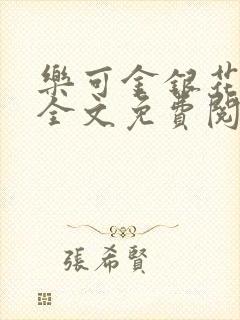 樂可金銀花
全文免費閱
張希賢